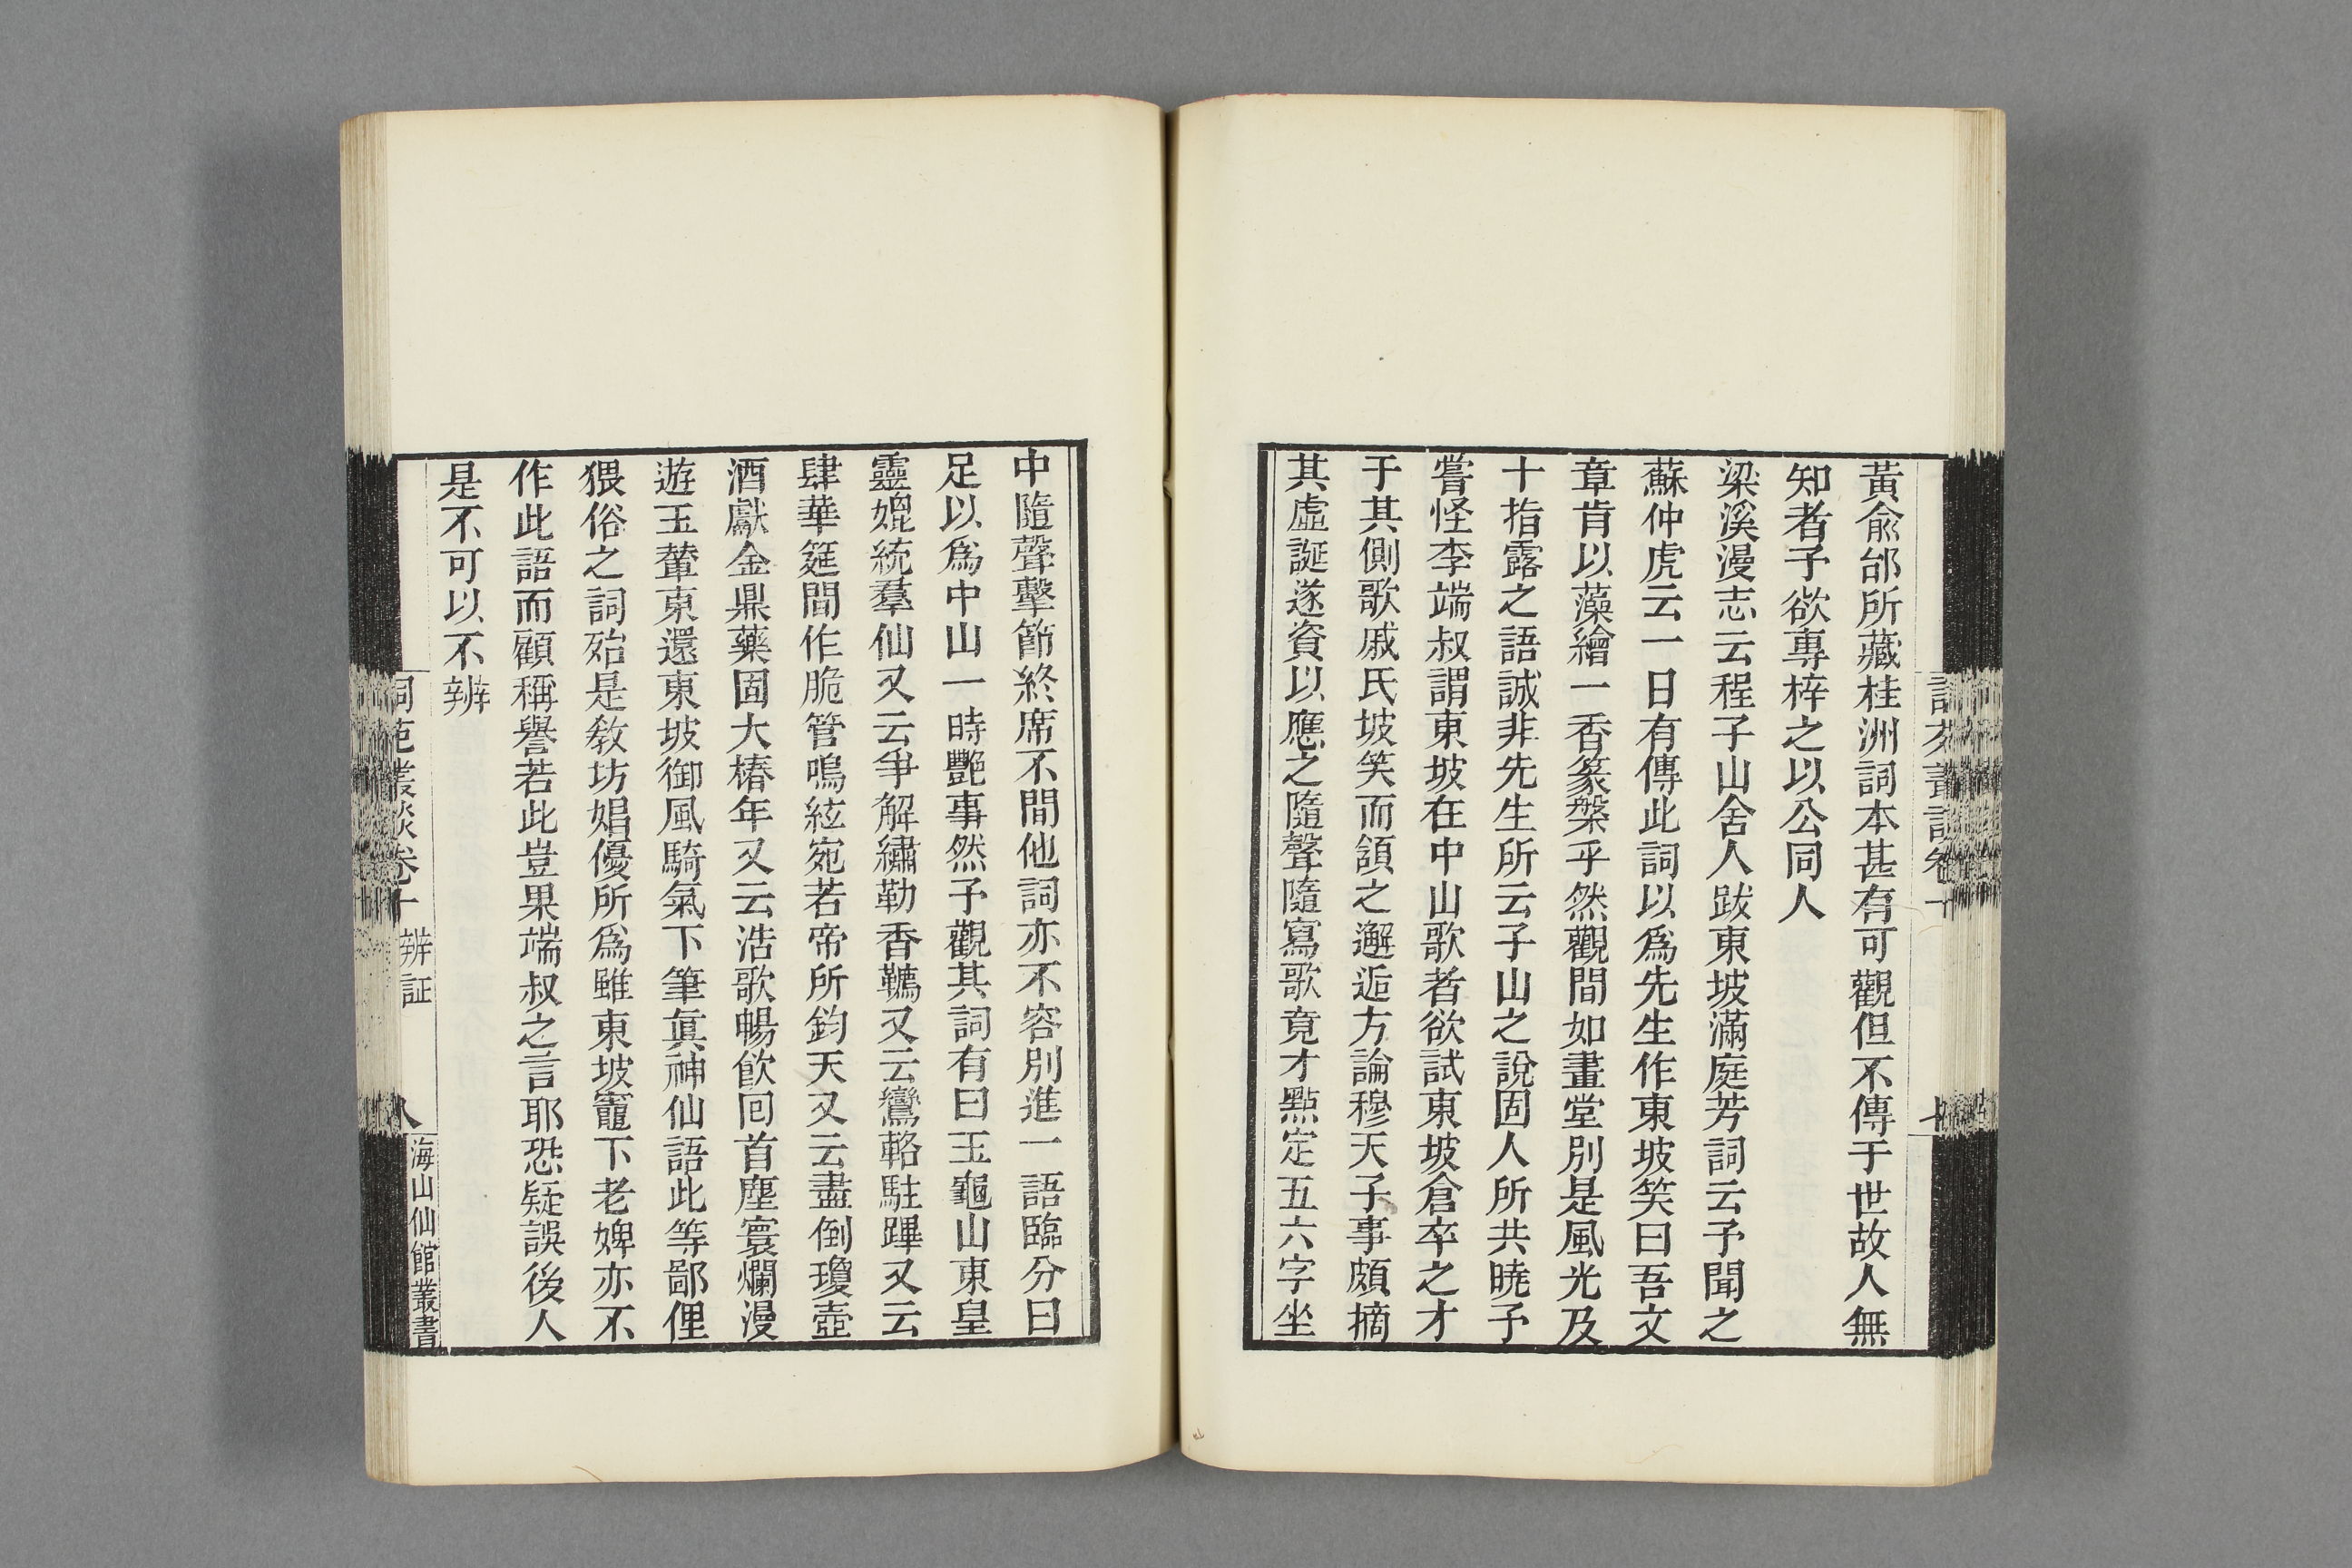 黃兪邰所藏桂洲詞本甚有可觀但不傳于世故人無
知者予欲專梓之以公同人
梁溪漫志云程子山舍人跋東坡滿庭芳詞云予聞之
蘇仲虎云一日有傳此詞以爲先生作東坡笑曰吾文
章肯以藻繪一香篆槃乎然觀間如畫堂別是風光及
十指露之語誠非先生所云子山之說固人所共曉予
嘗怪李端叔謂東坡在中山歌者欲試東坡倉卒之才
于其側歌戚氏坡笑而頷之邂逅方論穆天子事頗摘
其虛誕遂資以應之隨聲隨寫歌竟才點定五六字坐
中隨聲擊節終席不間他詞亦不容別進一語臨分曰
足以爲中山一時艷事然予觀其詞有曰玉龜山東皇
靈媲統羣仙又云爭解繡勒香韉又云鸞輅駐蹕又云
肆華筵間作脆管鳴絃宛若帝所鈞天又云盡倒瓊壺
酒獻金鼎藥固大椿年又云浩歌暢飮回首塵寰爛漫
遊玉輦東還東坡御風騎氣下筆眞神仙語此等鄙俚
猥俗之詞殆是敎坊娼優所爲雖東坡竈下老婢亦不
作此語而顧稱譽若此豈果端叔之言耶恐疑誤後人
是不可以不辨
詞苑叢談卷十 辨証 八
海山仙館叢書